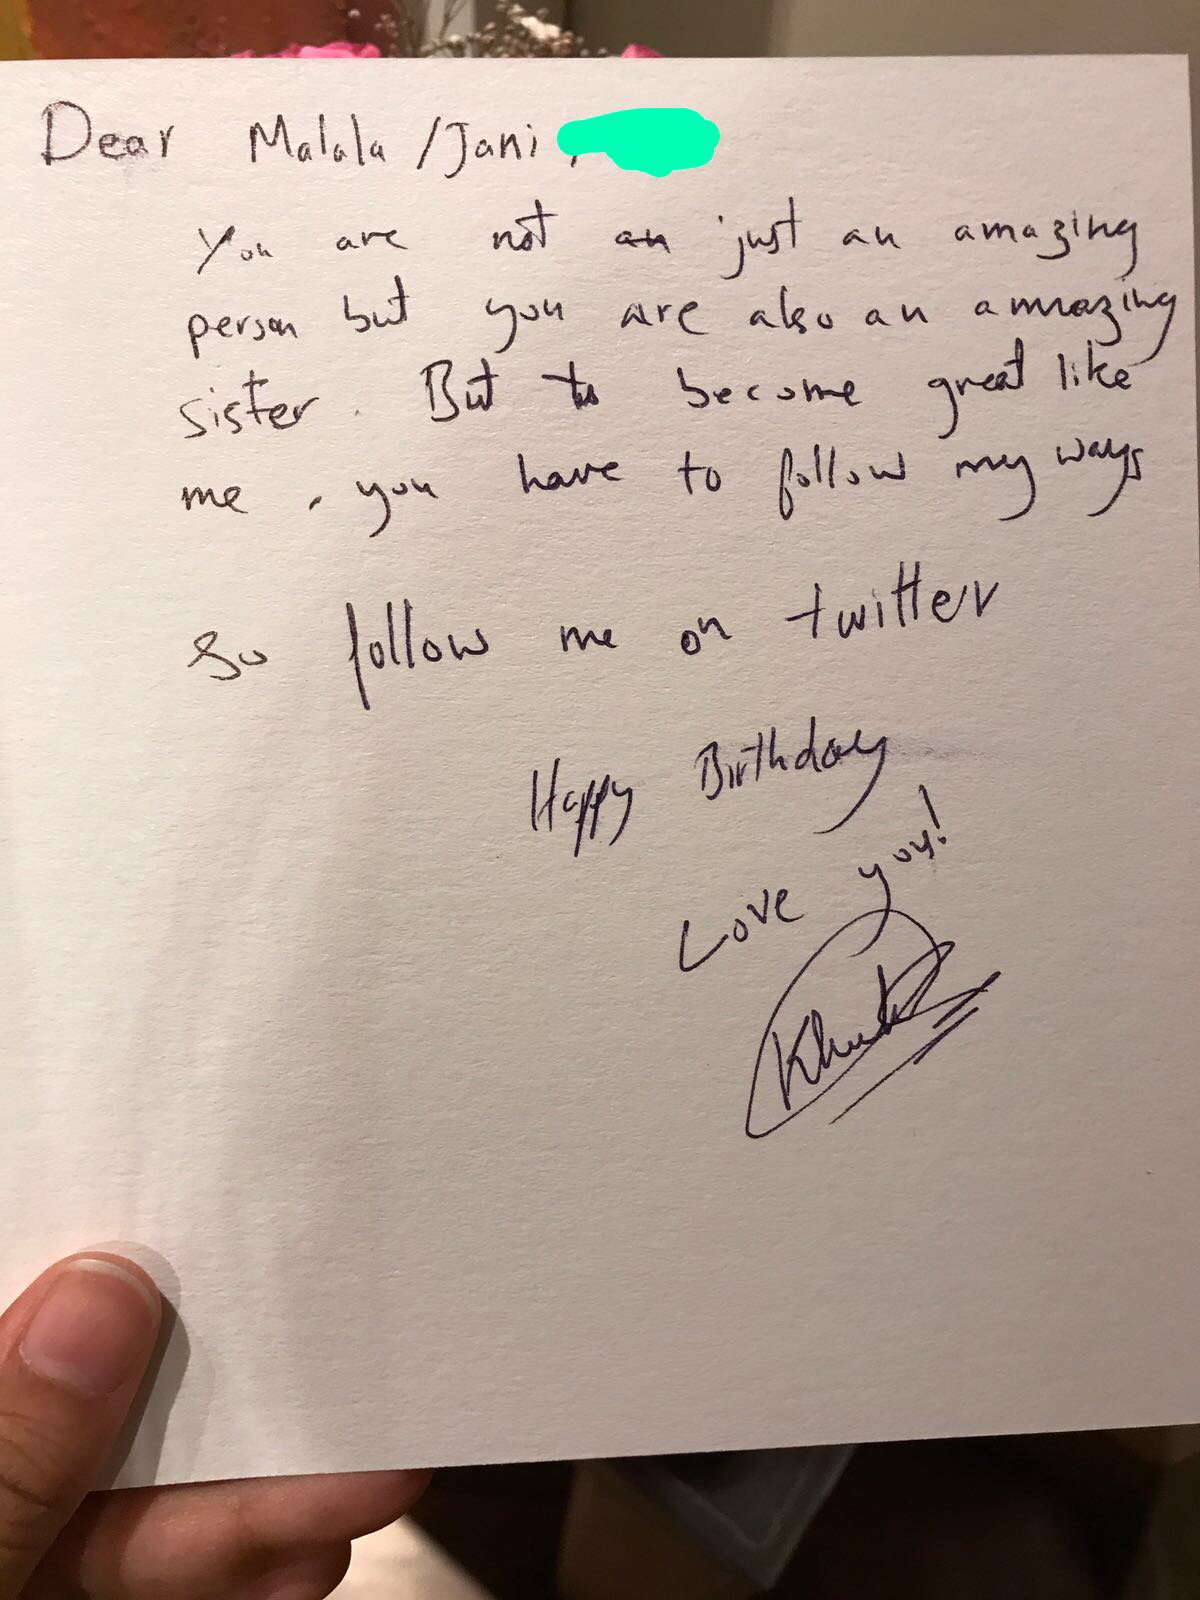 Dear Malala / Jani,
You are not an just an amazing
person but you are also an amazing
sister. But to become great like
me, you have to follow my ways
So follow me on twitter
Happy Birthday
Love you!